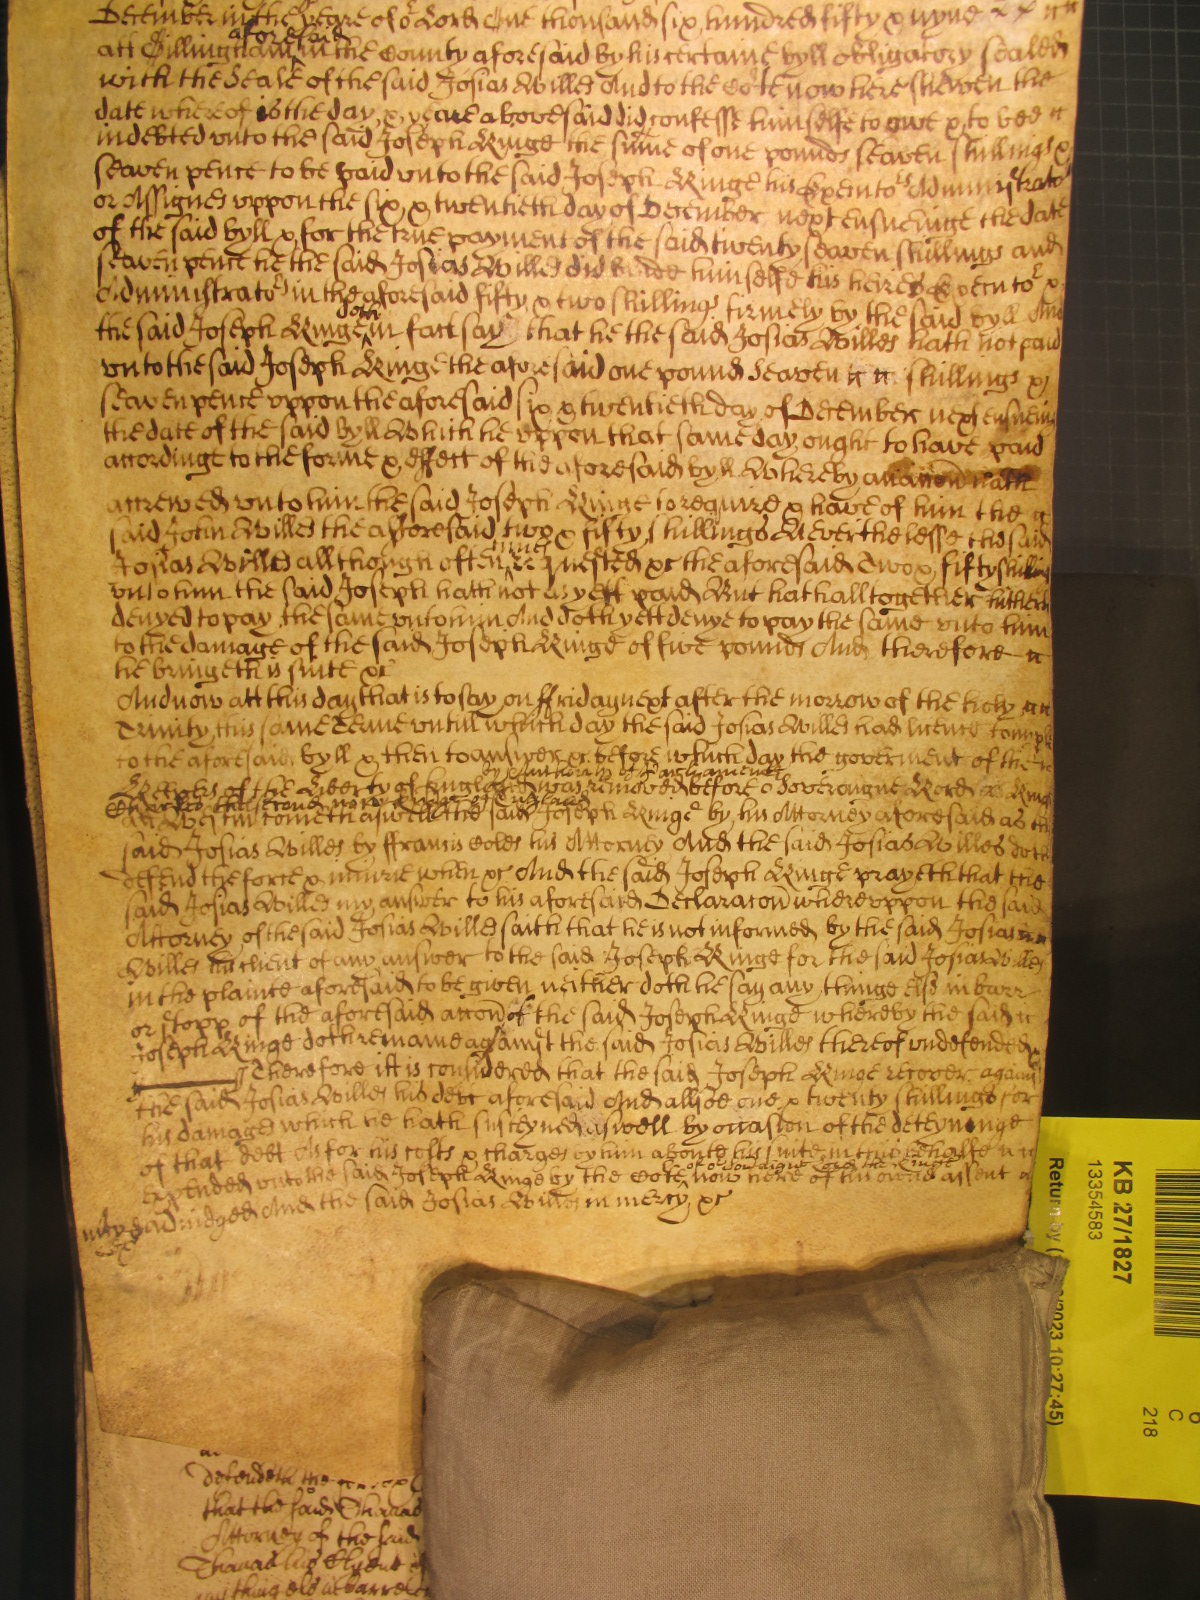 December in the yeare of or Lord One thousand six hundred fifty & nyne
att Gillingham aforesaid in the County aforesaid by his certaine byll obligatory sealed
with the Seale of the said Josias Willes And to the Cote now here shewen the
date whereof is the day & yeare abovesaid did confesse himselfe to owe & to bee
indebted unto the said Joseph Ringe the sume of one pounds seaven shillings &
seaven pence to be paid unto the said Joseph Ringe his Execntors Administrators
or Assignes uppon the six & twentieth day of December next ensueinge the date
of the said byll & for the true payment of the said twenty seaven shillings and
seaven pence he the said Josias Willes did binde himselfe his heires Execntors &
Administrators in the aforesaid fifty & two shillings firmely by the said byll And
the said Joseph Ringe doth in fact say that he the said Josias Willes hath not paid
unto the said Joseph Ringe the aforesaid one pound Seaven shillings &
seaven pence uppon the aforesaid six & twentieth day of December next ensueing
the date of the said byll Which he uppon that same day ought to have paid
accordinge to the forme & effect of the aforesaid byll Whereby an accon hath
accrewed unto him the said Joseph Ringe to require & have of him the
said John Willes the aforesaid two & fifty shillings Neverthelesse the said
Josias Willes allthough often times requested &c the aforesaid Two & fifty shillings
unto him the said Joseph hath not as yett paid But hath alltogether hitherto
denyed to pay the same unto him And doth yett denye to pay the same unto him
to the damage of the said Joseph Ringe of five pounds And therefore
he bringeth is suite &c
And now att this day that is to say on ffriday next after the morrow of the holy
Trinity this same Terme untill which day the said Josias Willes had licence to imparle
to the aforesaid byll & then to answer &c before which day the goverment of the
Keepers of the Liberty of England by Authority of Parliament was removed before or Soveraigne Lord the King
Charles the second now Kinge of England
att Westm cometh aswell the said Joseph Ringe by his Attorney aforesaid as the
said Josias Willes by ffrancis Coles his Attorney And the said Josias Willes doth
defend the force & iniurie when &c And the said Joseph Ringe prayeth that the
said Josias Willes may answer to his aforesaid Declaracon whereuppon the said
Attorney of the said Josias Willes saith that he is not informed by the said Josias
Willes his client of any answer to the said Joseph Ringe for the said Josias Willes
in the plainte aforesaid to be given neither doth he say any thinge else in barr
or stopp of the aforesaid accon of the said Joseph Ringe whereby the said
Joseph Ringe doth remaine against the said Josias Willes thereof undefended &c
Therefore itt is considered that the said Joseph Ringe recover against
the said Josias Willes his debt aforesaid And allsoe one & twenty shillings for
his damages which he hath susteyned aswell by occasion of the deteyninge
of that debt As for his costs & charges by him aboute his suite in this behalfe
expended unto the said Joseph Ringe by the Cote of or Soveraigne Lord the Kinge now here of his owne assent
adiudged And the said Josias Willes in mercy &c
mity &c
defendeth the
that the said Thomas
Attorney of the said
Thomas his Clyent
any thing els in barre
KB 27/1827
13354583
Return by (
2023 10:27:45)
C
218